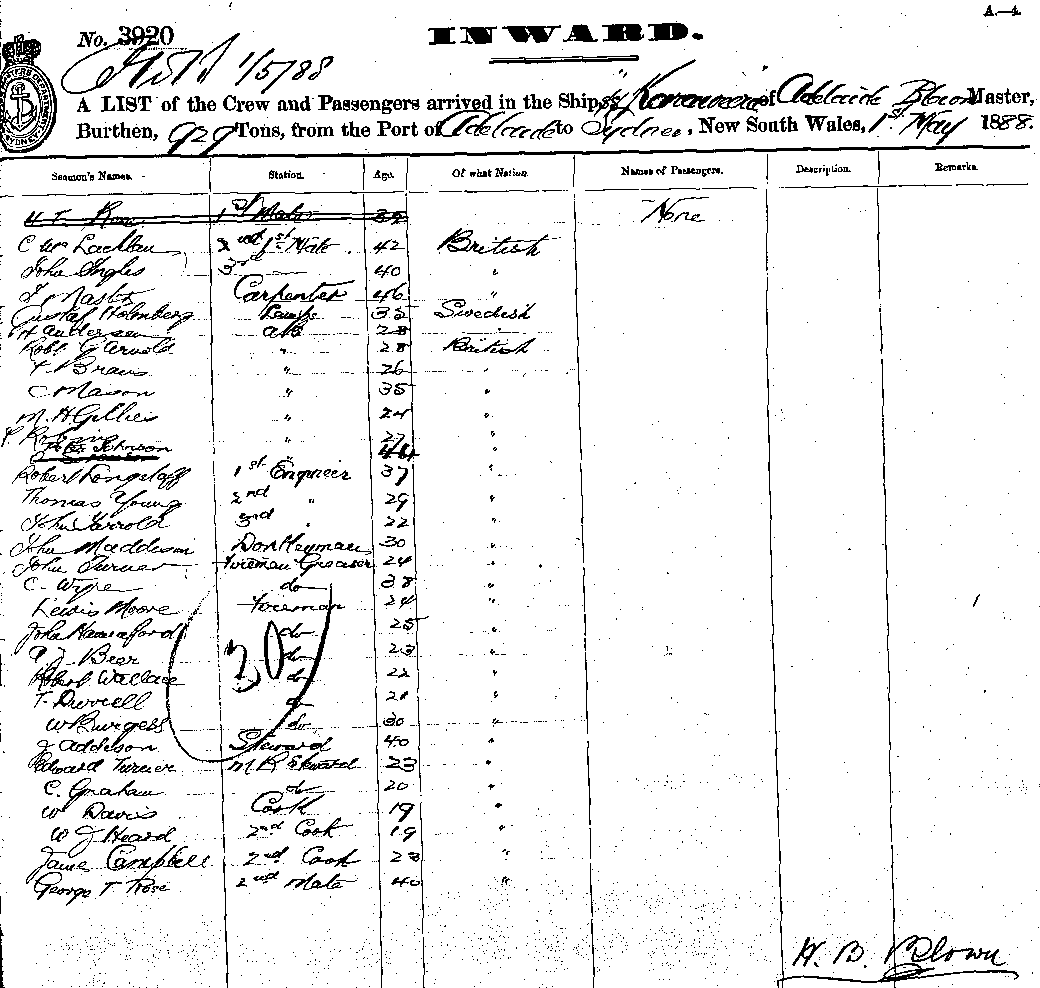 A.—4.
No. 3920
INWARD.
1/5/88
A LIST of the Crew and Passengers arrived in the Ship of Adelaide Blown Master,
Burthen, 929 Tons, from the Port of Adelaide to Sydney, New South Wales, 1st May 1888.
Seamen's Names. Station. Age. Of what Nation. Names of Passengers. Description. Remarks.
1st Mate 39 None
C Mc Lachlan 2nd 1st Mate 42 British
John Ingles 3rd 40 "
Masts Carpenter 46 "
Gustaf Holmberg Lamps 35 Swedish
H Andersen AB 28
Robt G Arnold " 28 British
" 26 "
C Mason " 35 "
M. H Gillies " 24 "
" 27 "
Johnson 44
Robert Longstaff 1st Engineer 37 "
Thomas Young 2nd " 29 "
John Jarrold 3rd " 22 "
John Maddison Donkeyman 30 "
John Turner Fireman Greaser 24 "
C. Wyre do 38 "
Lewis Moore Fireman 24 "
John Hannaford do 25 "
A J. Beer do 23 "
Robert Wallace do 22 "
30
T. Durrell do 21 "
W Burgess do 30 "
J Addison Steward 40 "
Edward Turner M R Steward 23 "
C. Graham do 20 "
W Davis Cook 19 "
W J Heard 2nd Cook 19 "
Jame Campbell 2nd Cook 23 "
George T. Rose 2nd Mate 40 "
H. B. Blown